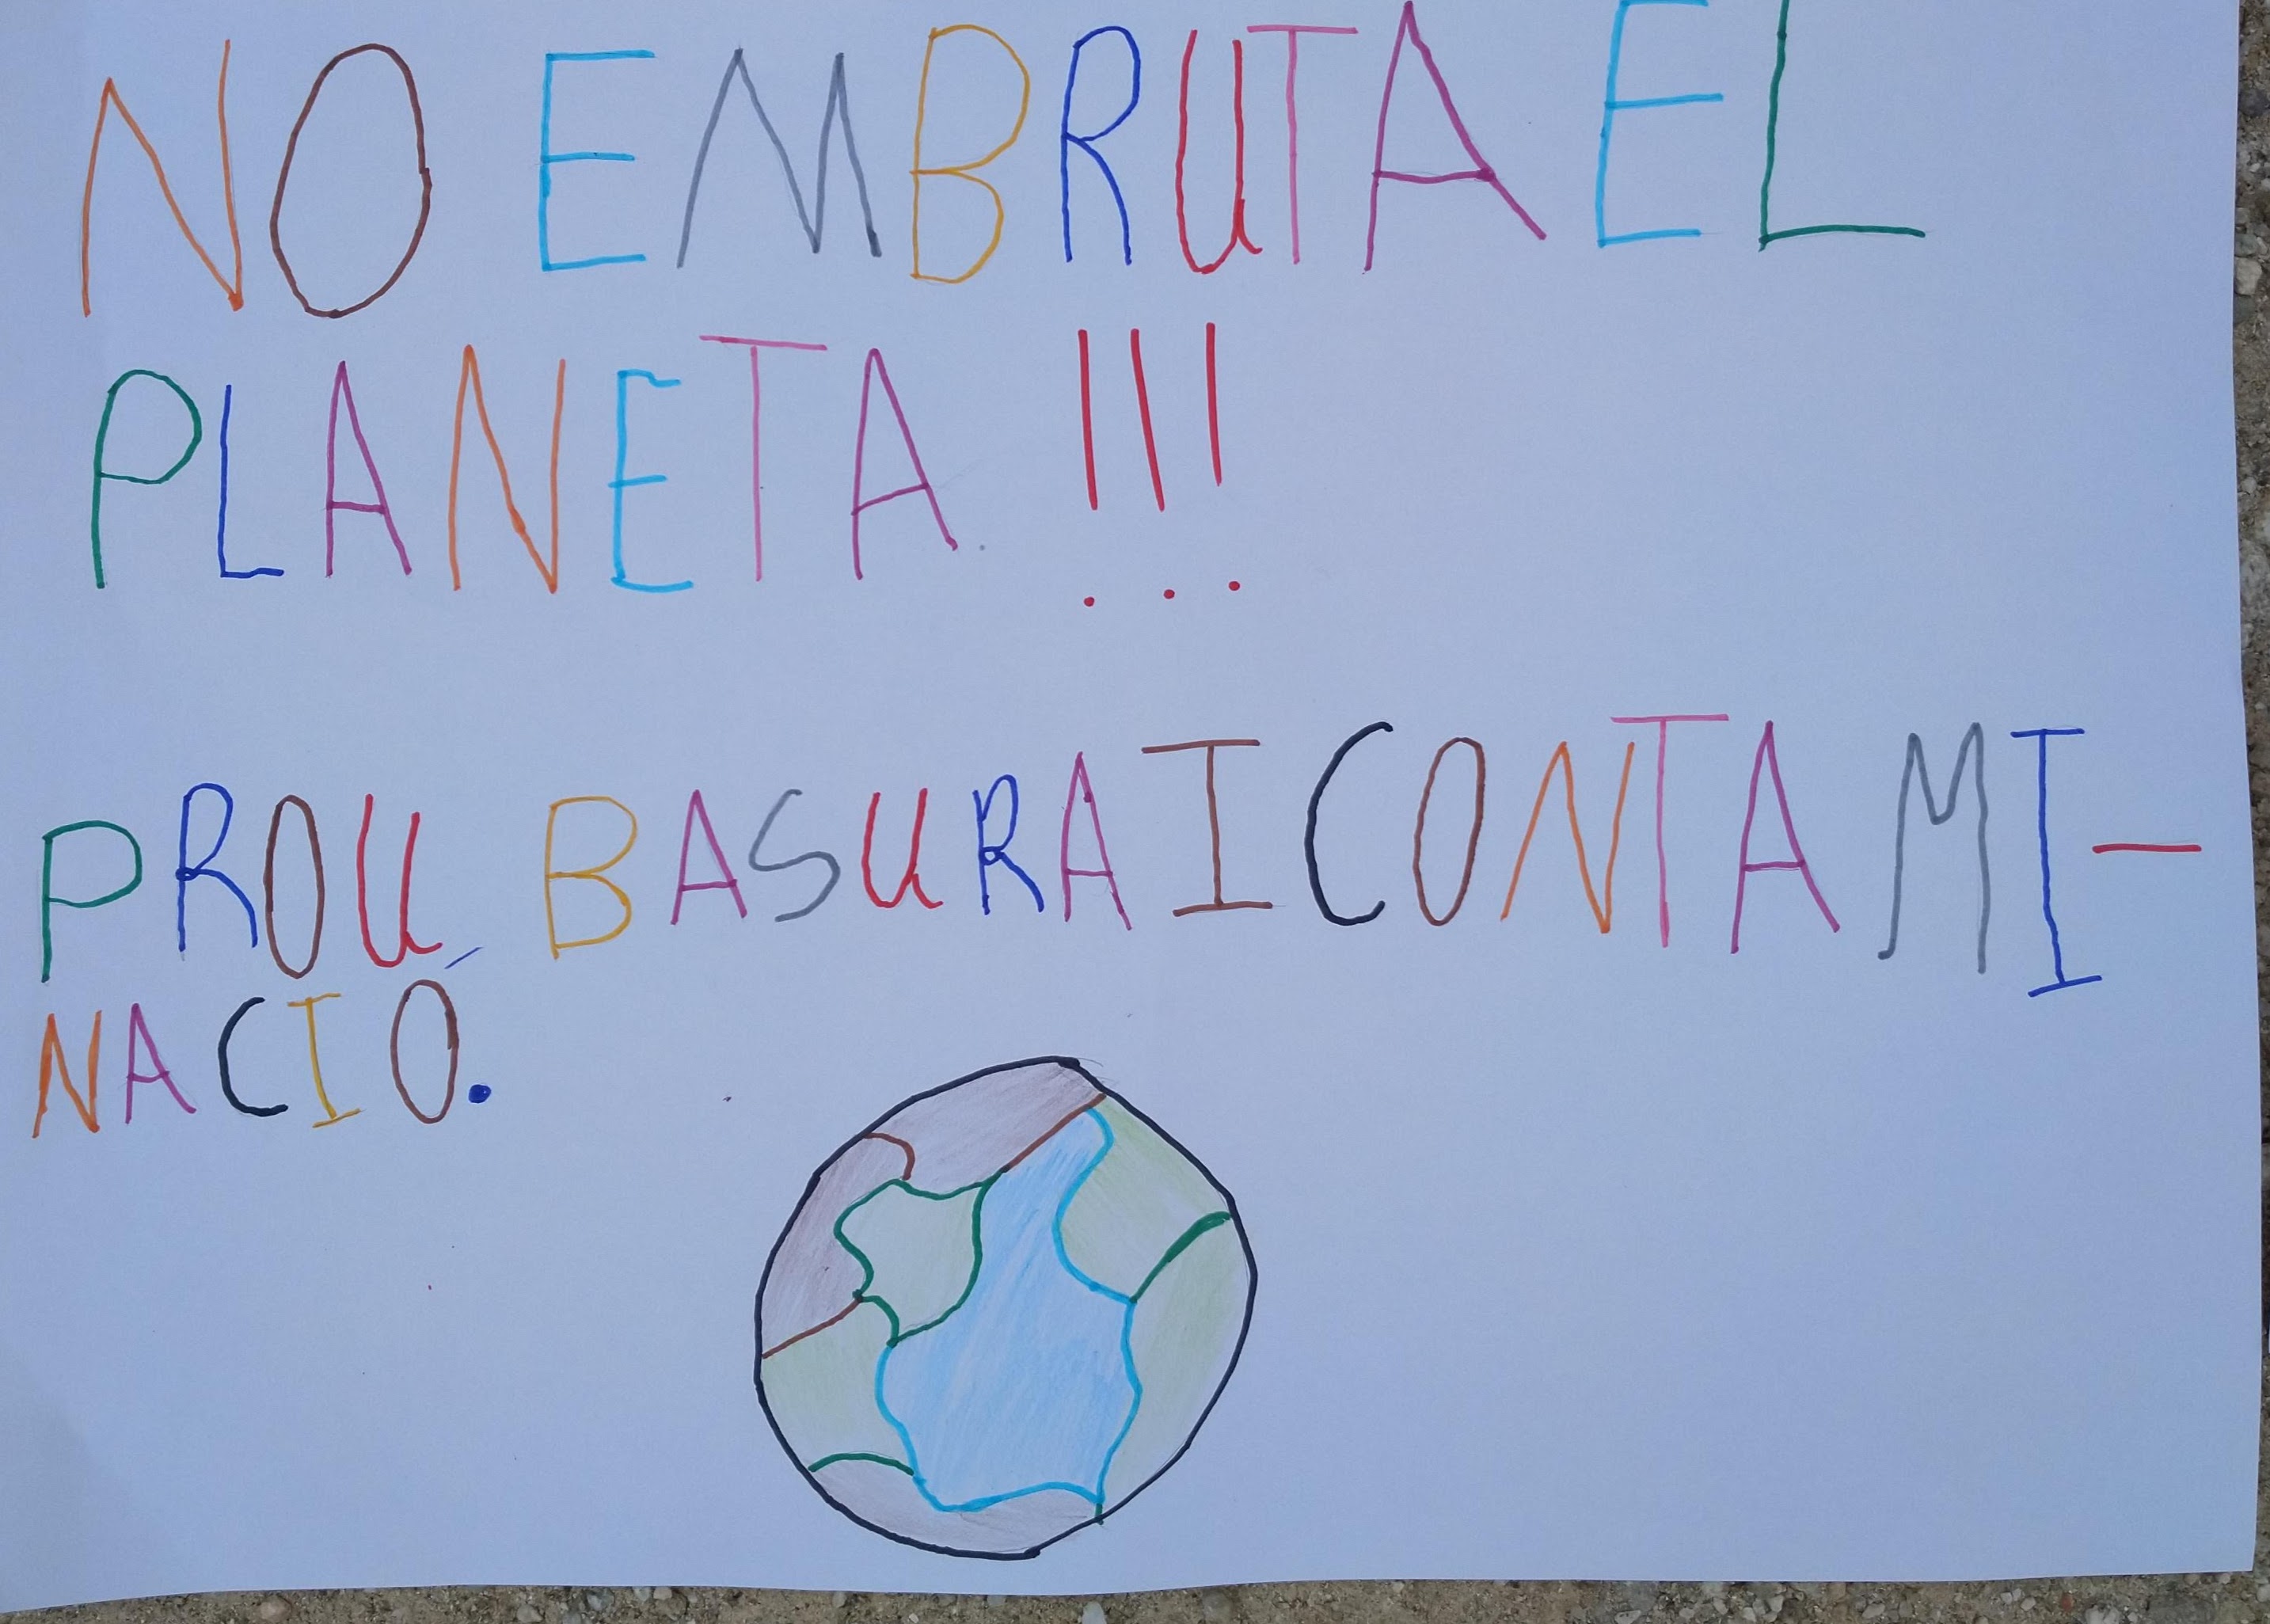 NO EMBRUTA EL
PLANETA !!!
PROU BASURA I CONTAMI-
NACIÓ.